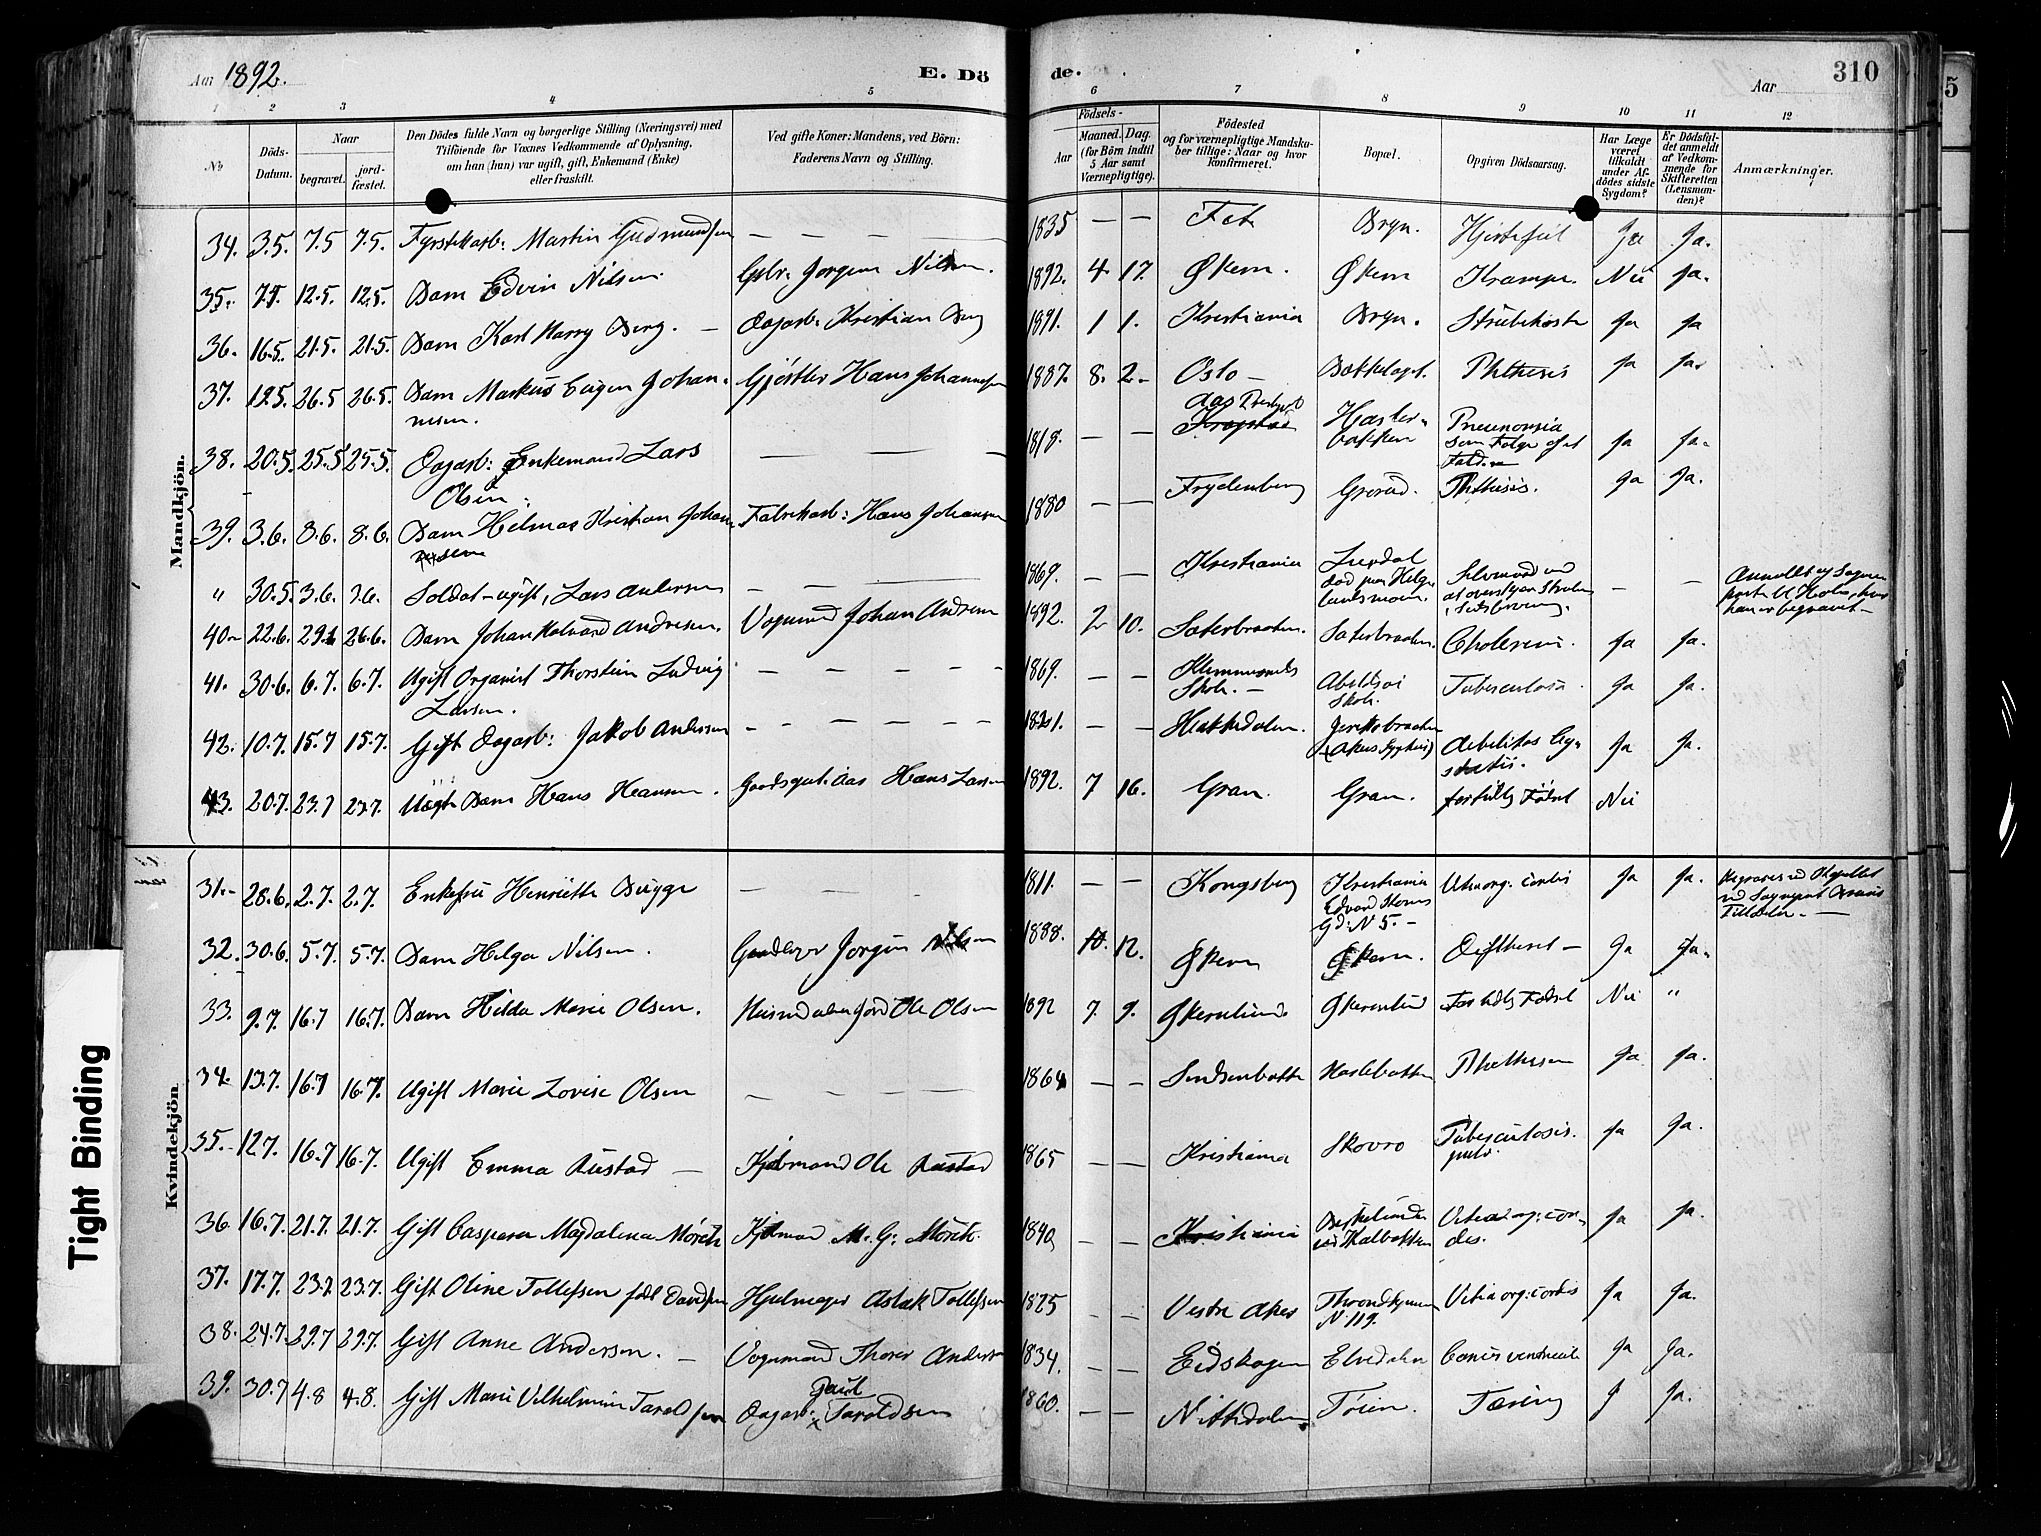 Aar 1892. E. Dö de. Aar 310
5
1 2 3 4 5 6 7 8 9 10 11 12
No
Döds-Datum.
Naar
begravet. jord-fæstet.
Den Dödes fulde Navn og borgerlige Stilling (Næringsvei) med
Tilföiende for Voxnes Vedkommende af Oplysning,
om han (hun) var ugift, gift, Enkemand (Enke)
eller fraskilt.
Ved gifte Koner: Mandens, ved Börn:
Faderens Navn og Stilling.
Födsels-
Aar
Maaned. Dag.
(for Börn indtil
5 Aar samt
Værnepligtige).
Födested
og for værnepligtige Mandskaber tillige: Naar og hvor
konfirmeret.
Bopæl.
Opgiven Dödsaarsag.
Har Læge
været
tilkaldt
under Afdödes sidste
Sygdom?
Er Dödsfaldet anmeldt
af Vedkommende for
Skifteretten
(Lensmanden)?
Anmærkninger.
Mandkjön.
34. 3.5. 7.5 7.5. Martin Gudmundsen — 1835 — — Fet Bryn. Hjertefeil Ja Ja.
35. 7.5. 12.5. 12.5. Barn Edvin Nilsen. Gbr. Jorgen Nilsen. 1892. 4. 17. Økern. Økern Krampe. Nei Ja.
36. 16.5. 21.5. 21.5. Barn Karl Harry Berg. — Dagarb. Kristian Berg 1891. 1 1. Kristiania Bryn. Strubehoste Ja Ja
37. 19.5. 26.5 26.5. Barn Markus Eugen Johan-
nesen. Gjörtler Hans Johannesen 1887. 8. 2. Oslo — Bækkelaget. Phthisis Ja Ja.
38. 20.5. 25.5 25.5. Dagarb: Enkemand Lars
Olsen. — 1818. — — Aas Prestegj. Kragstad Hasler-
bakken Pneumonia
som Følge af et
Fald. Ja Ja.
39. 3.6. 8.6. 8.6. Barn Helmar Kristian Johan-
sen Fabrikarb: Hans Johansen 1880 — — Frydenberg Grorud. Phthisis. Ja Ja.
" 30.5. 3.6. 3.6. Soldat — ugift, Lars Andersen — 1869. — — Kristiania
død paa Helge-
landsmoen. Selvmord ved
at overskjære Struben
— — Anmeldt
han er begravet —
40. 22.6. 29.6 26.6. Barn Johan Halvard Andresen. Vognmand Johan Andresen 1892. 2 10. Sæterbraaten. Sæterbraaten. Cholerine Ja Ja.
41. 30.6. 6.7. 6.7. Ugift Organist Thorstein Ludvig
Larsen. — 1869. — — Klemmetsrud
Skole. — Abildsø
Skole. Tuberculosis. Ja Ja.
42. 10.7. 15.7 15.7. Gift Dagarb: Jakob Andersen — 1821. — — Hakkedalen. Jerikobraaten
(Akers Sygehus) Debilitas
Ja Ja.
43. 20.7. 23.7 23.7. Uægte Barn Hans Hansen. Gaardsgut Hans Larsen 1892. 7 16. Gran. Gran. for tidlig Födsel Nei
Kvindekjön.
31. 28.6. 2.7. 2.7. Enkefru Henriette Bugge — 1811. — — Kongsberg Kristiania
Edvard Storms
Gd: N 5. — Vitium org: cordis Ja Ja.
32. 30.6. 5.7. 5.7. Barn Helga Nilsen. Gaardbr Jorgen Nilsen 1888. 10. 12. Økern Økern. Diftherit — Ja Ja.
33. 9.7. 16.7 16.7. Barn Hilda Marie Olsen. Husmd Ole Olsen 1892 7. 9. Økernlund Økernlund For tidlig Fødsel Nei "
34. 13.7. 16.7 16.7. Ugift Marie Lovise Olsen — 1864 — — Sindsenbakken Haslebakken Phthisis Ja Ja.
35. 12.7. 16.7 16.7. Ugift Emma Rustad — Kjøbmand Ole Rustad 1865 — — Kristiania Skovro Tuberculosis
pulm. Ja Ja.
36 16.7. 21.7. 21.7. Gift Caspara Magdalena Möritz Kjøbmand M. G. Möritz 1840 — — Kristiania
ved Kalbakken Vitium org: cor-
dis. Ja Ja.
37. 17.7. 23.7 23.7. Gift Oline Tollefsen født Davidsen Hjulmager Aslak Tollefsen 1825 — — Vestre Aker Throndhjemsv.
N. 119. Vitium org: cordis Ja Ja.
38. 24.7. 29.7 29.7. Gift Anne Andersen. — Vognmand Thorer Andersen 1834. — — Eidskogen Elvedalen Cancer ventriculi Ja Ja.
39. 30.7 4.8 4.8. Gift Marie Vilhelmine Taraldsen Dagarb: Paul Taraldsen 1860. — — Nittedalen Töien. Tæring J Ja.
Tight Binding